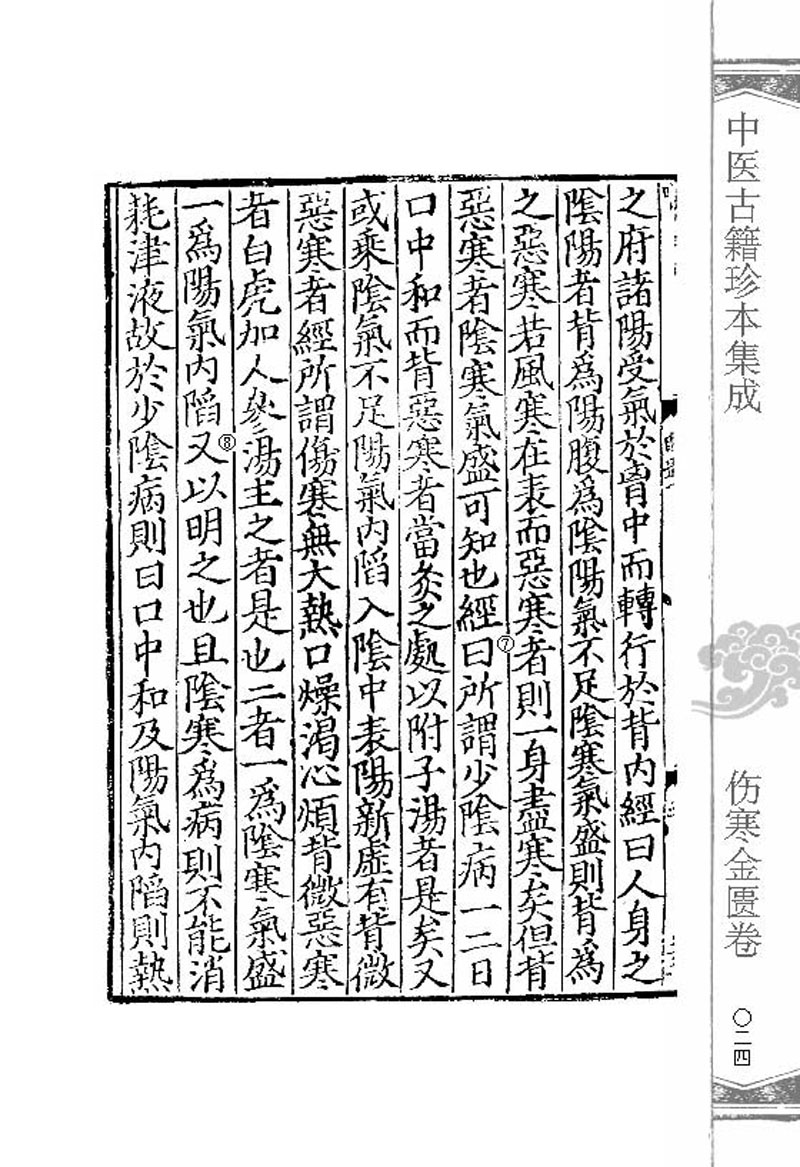 之府諸陽受氣於胷中而轉行於背内經曰人身之
陰陽者背爲陽腹爲陰陽氣不足陰寒氣盛則背爲
之惡寒若風寒在表而惡寒者則一身盡寒矣但背
惡寒者陰寒氣盛可知也經曰⑦所謂少陰病一二日
口中和而背惡寒者當灸之處以附子湯者是矣又
或乘陰氣不足陽氣内陷入陰中表陽新虚有背微
惡寒者經所謂傷寒無大熱口燥渴心煩背微惡寒
者白虎加人參湯主之者是也二者一爲陰寒氣盛
一爲陽氣内陷又⑧以明之也且陰寒爲病則不能消
耗津液故於少陰病則曰口中和及陽氣内陷則熱
中医古籍珍本集成
伤寒金匮卷
〇二四